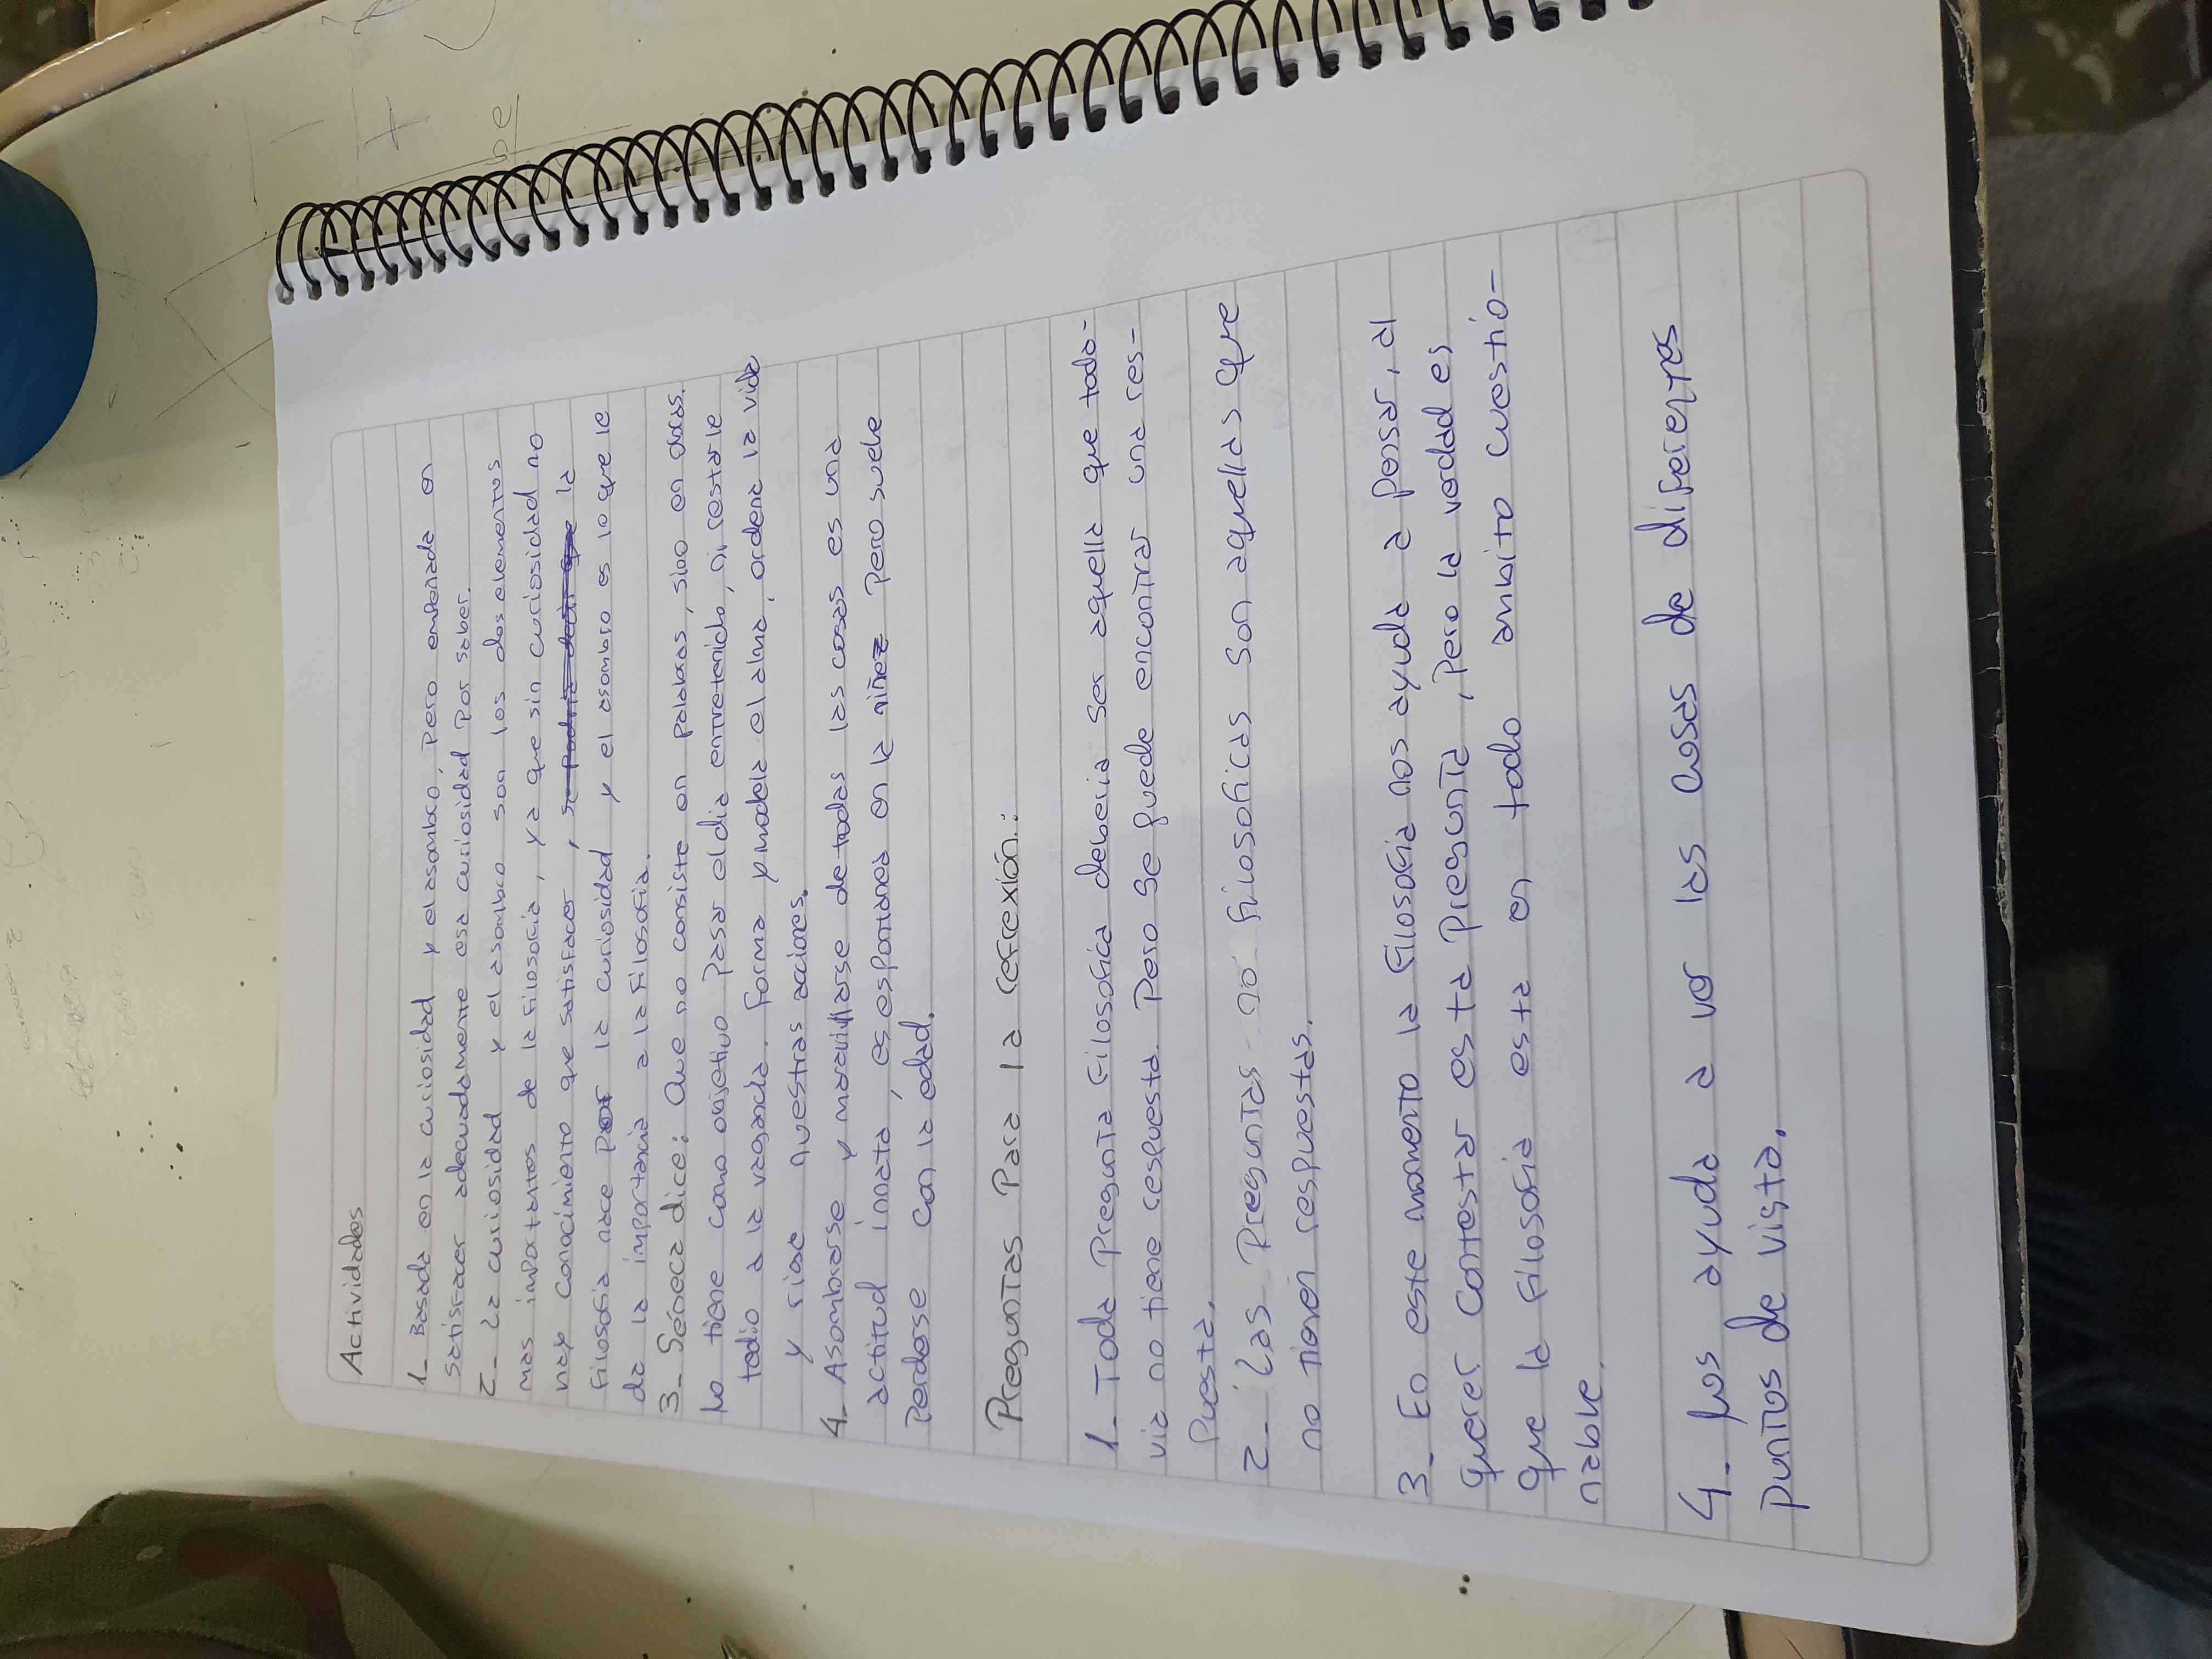 Actividades
1_ Basada en la curiosidad y el asombro, Pero empeñada en
satisfacer adecuadamente esa curiosidad Por saber.
2_ La curiosidad y el asombro son los dos elementos
mas importantes de la Filosofia, ya que sin curiosidad no
hay conocimiento que satisfacer, se Podria decir que la
Filosofia nace por la curiosidad y el asombro es lo que le
da la importancia a la Filosofia.
3_ Séneca dice: Que no consiste en palabras, sino en obras.
No tiene como objetivo Pasar el dia entretenido, ni restarle
tedio a la vagancia. Forma y modela el alma, ordena la vida
y rige nuestras acciones.
4_ Asombrarse y maravillarse de todas las cosas es una
actitud innata, es espontanea en la niñez Pero suele
Perderse con la edad.
Preguntas Para la refrexión:
1_ Toda Pregunta Filosofica deberia ser aquella que toda-
via no tiene respuesta. Pero Se puede encontrar una res-
Puesta.
2_ Las Preguntas no filosoficas Son aquellas que
no tienen respuestas.
3_ En este momento la Filosofia nos ayuda a Pensar, al
querer contestar esta Pregunta, Pero la verdad es
que la Filosofia esta en todo ambito cuestio-
nable.
4_ Nos ayuda a ver las cosas de diferentes
puntos de vista.
se